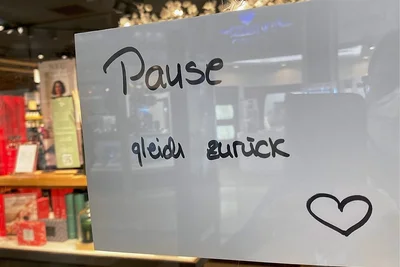 Pause
gleich zurück